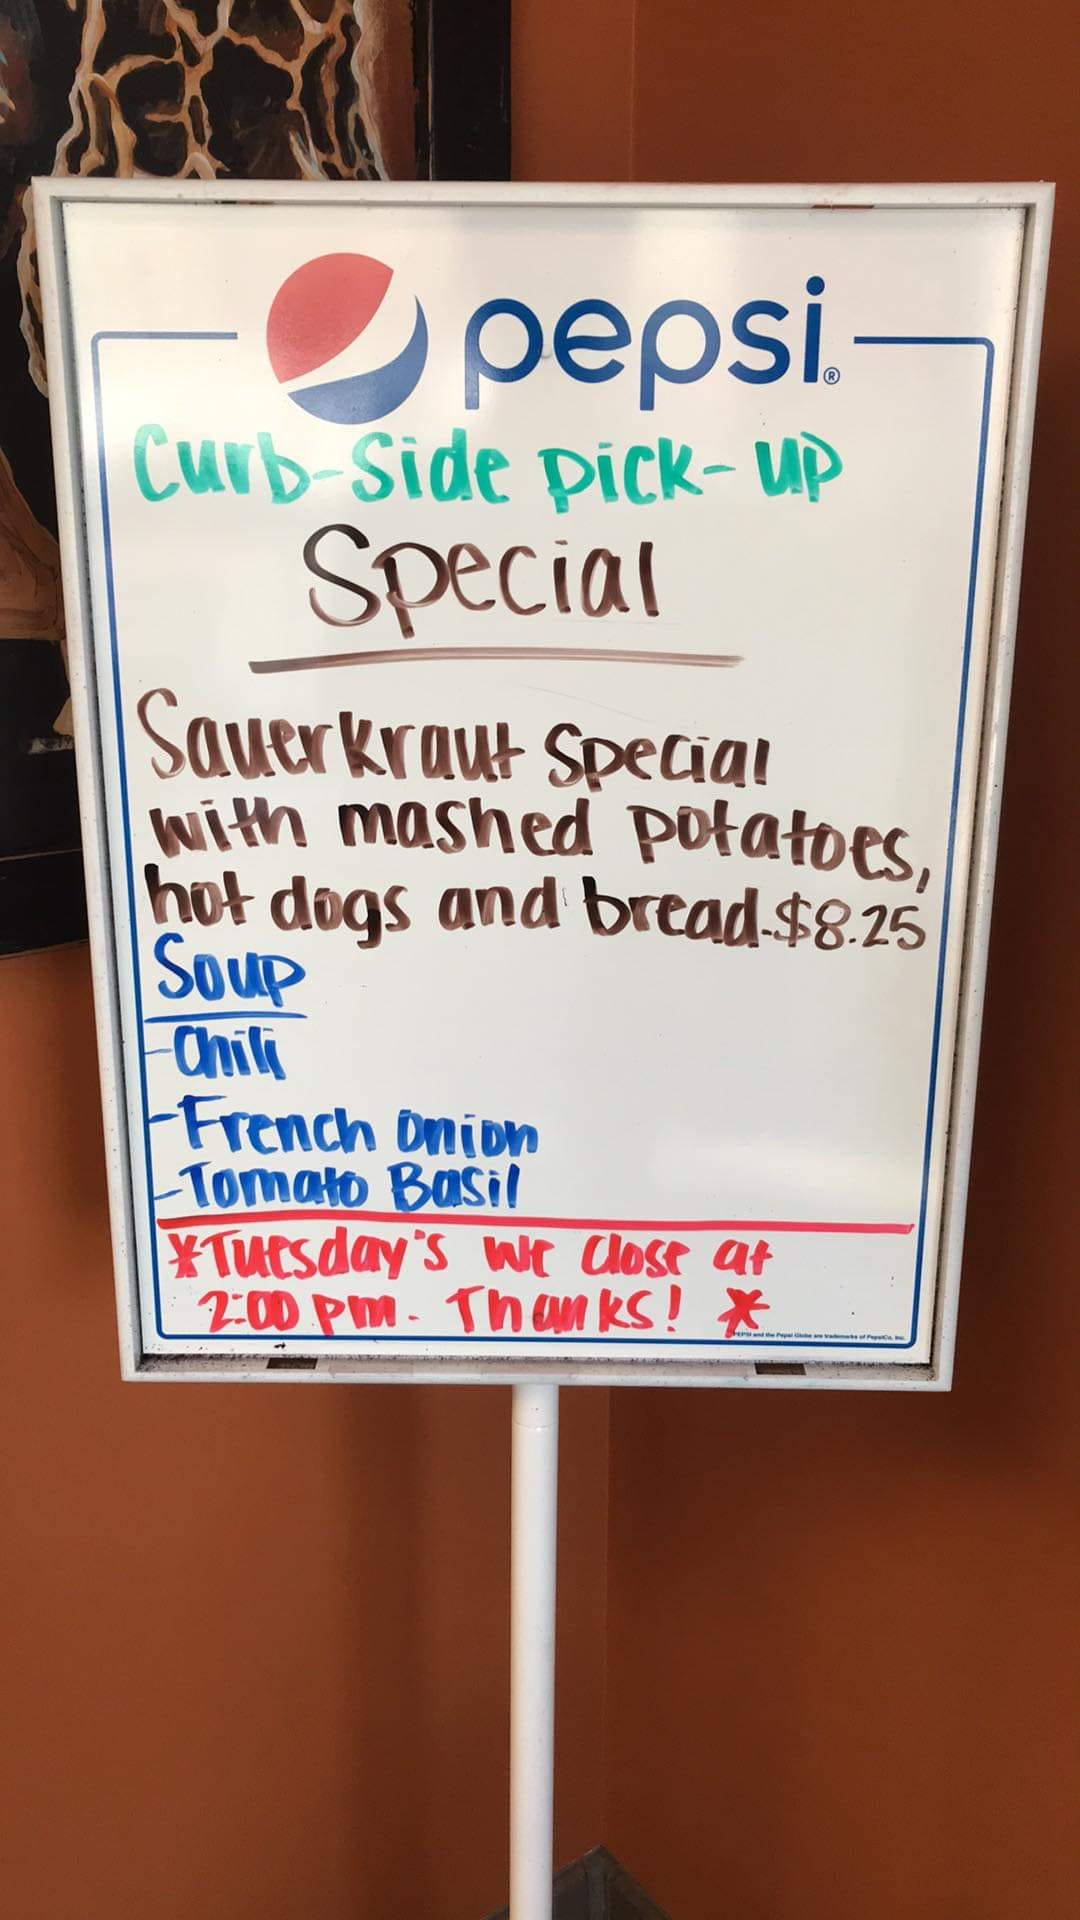 pepsi®
Curb-Side Pick-up
Special
Sauerkraut Special
with mashed potatoes,
hot dogs and bread.$8.25
Soup
-Chili
-French Onion
-Tomato Basil
*Tuesday's we close at
2:00 pm. Thanks! *
PEPSI and the Pepsi Globe are trademarks of PepsiCo, Inc.